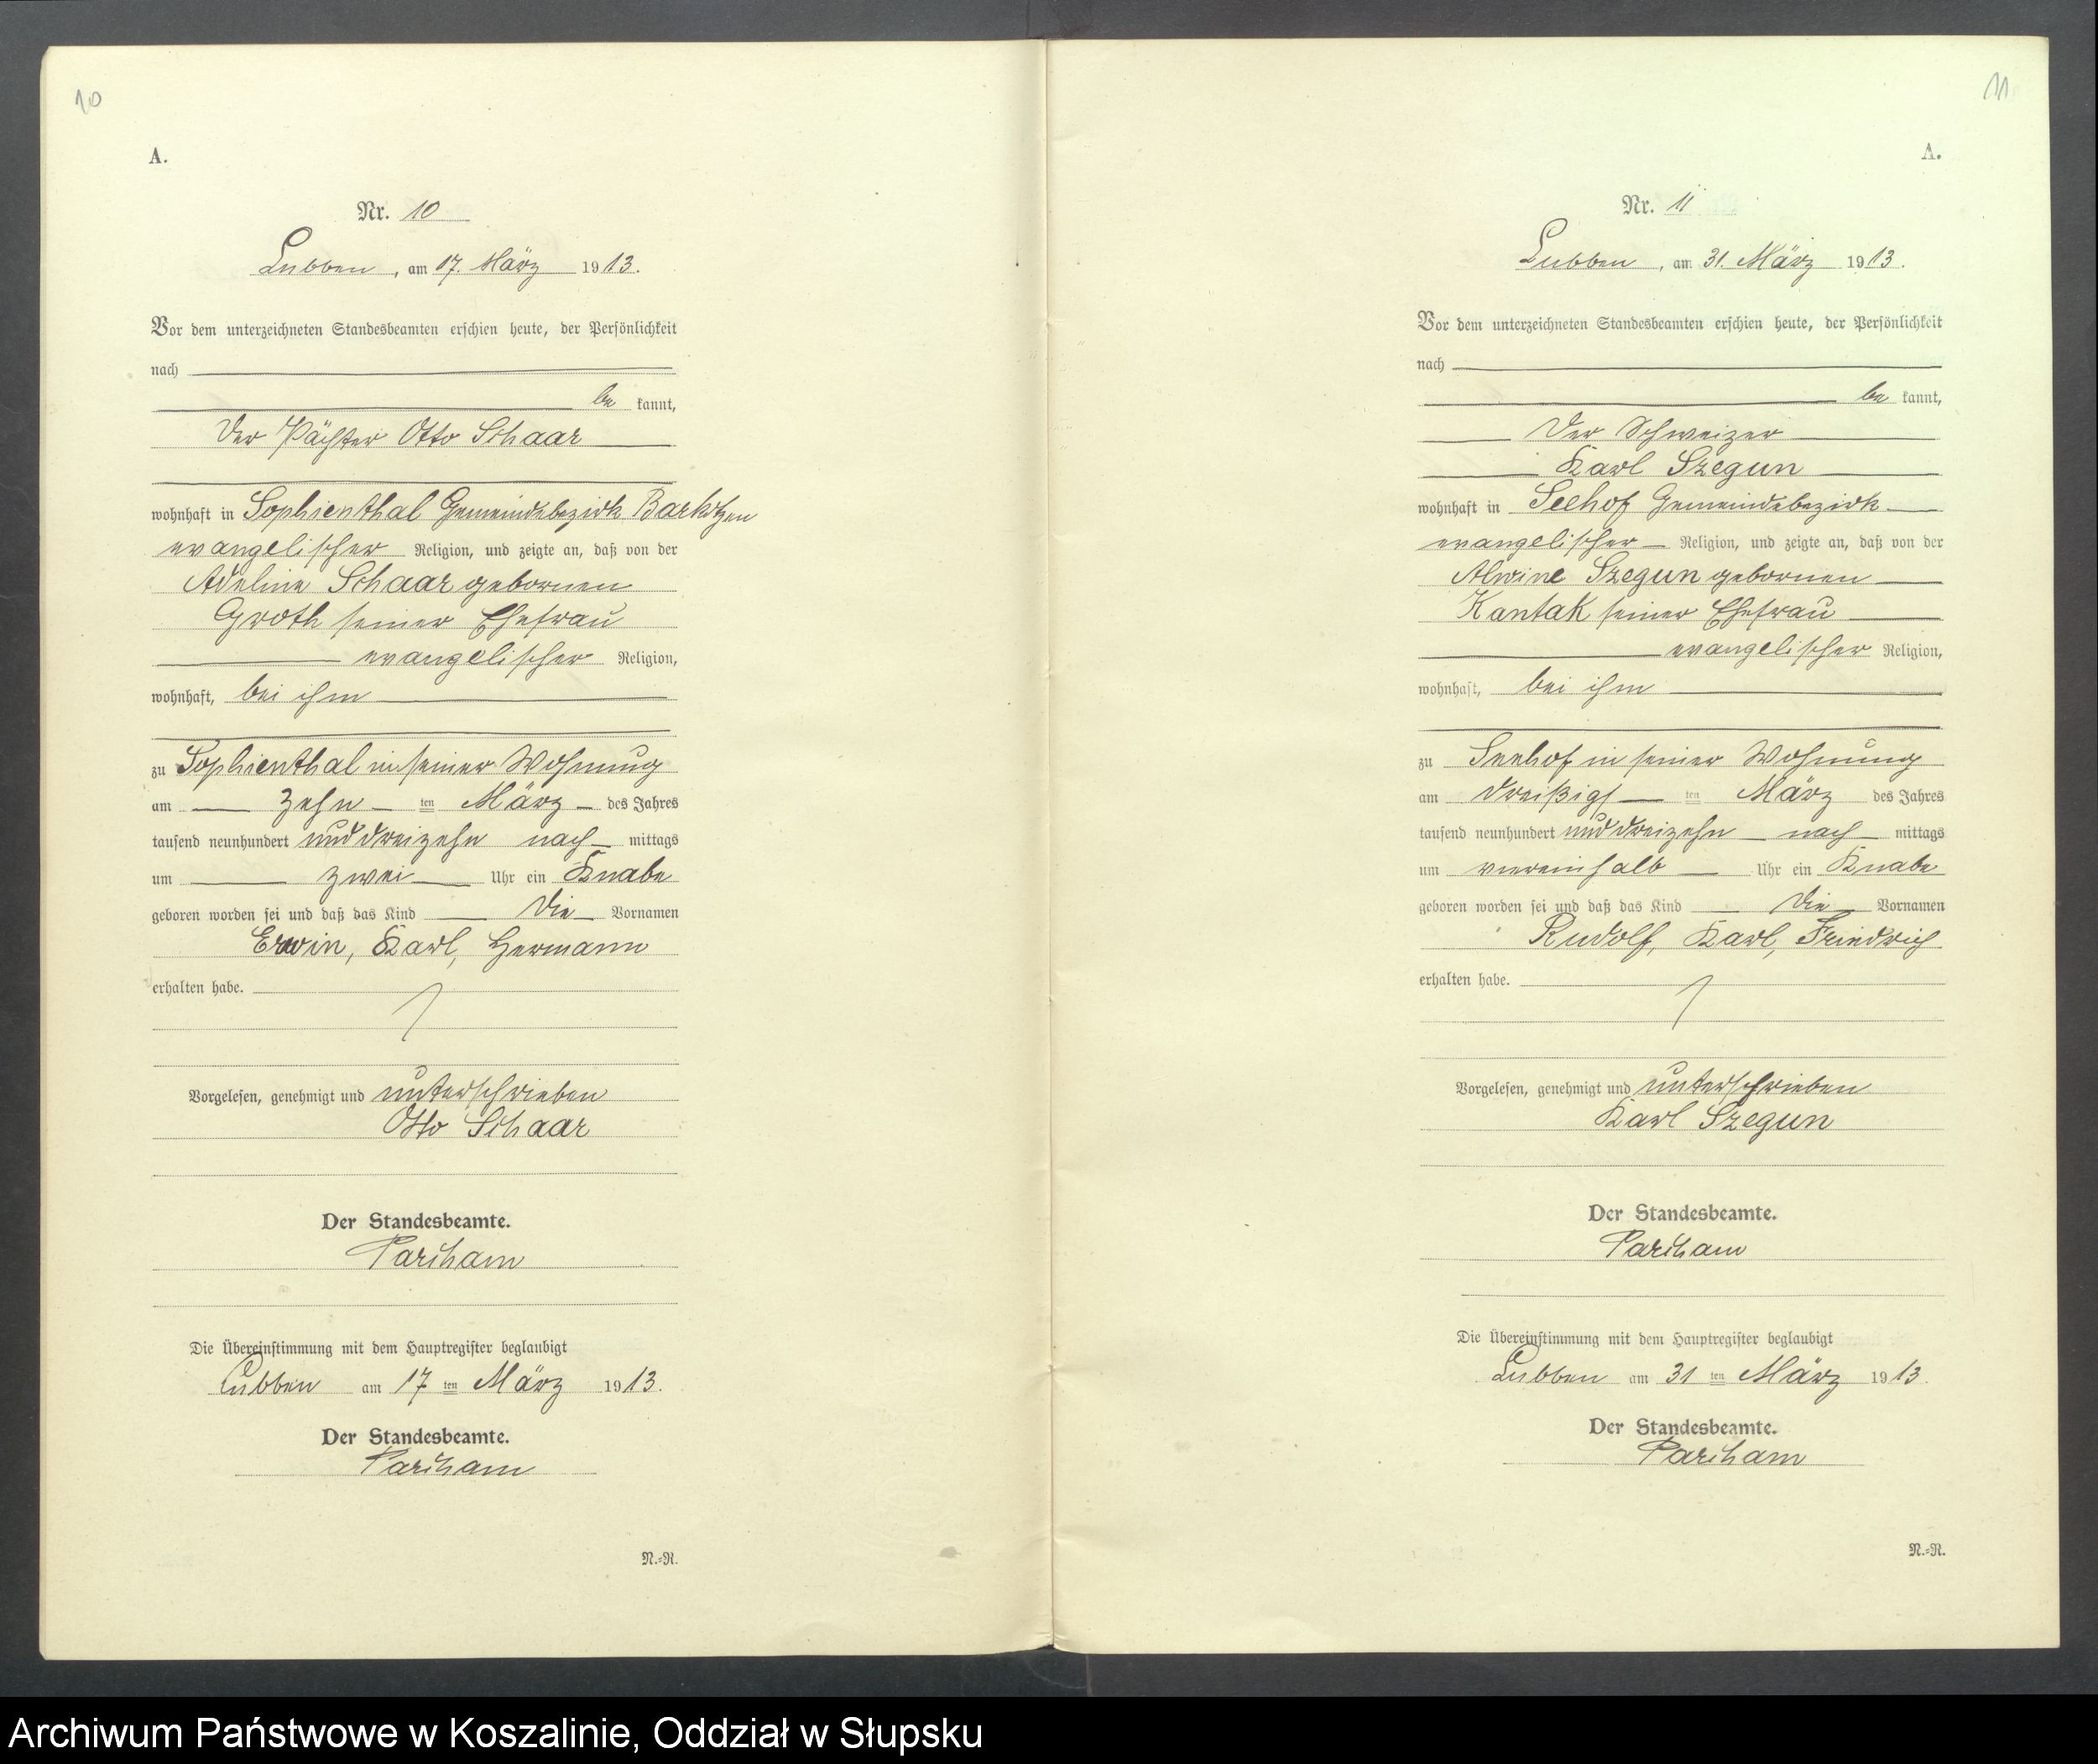 10
A.
Nr. 10
Lubben, am 17. März 1913.
Vor dem unterzeichneten Standesbeamten erschien heute, der Persönlichkeit
nach
be kannt,
der Pächter Otto Schaar
wohnhaft in Sophienthal Gemeindebezirk Barkotzen
evangelischer Religion, und zeigte an, daß von der
Adeline Schaar gebornen
Groth seiner Ehefrau
evangelischer Religion,
wohnhaft, bei ihm
zu Sophienthal in seiner Wohnung
am zehn ten März des Jahres
tausend neunhundert und dreizehn nach mittags
um zwei Uhr ein Knabe
geboren worden sei und daß das Kind die Vornamen
Erwin, Karl, Hermann
erhalten habe.
Vorgelesen, genehmigt und unterschrieben
Otto Schaar
Der Standesbeamte.
Parcham
Die Übereinstimmung mit dem Hauptregister beglaubigt
Lubben am 17 ten März 1913.
Der Standesbeamte.
Parcham
N.=R.
11
A.
Nr. 11
Lubben, am 31. März 1913.
Vor dem unterzeichneten Standesbeamten erschien heute, der Persönlichkeit
nach
be kannt,
der Schweizer
Karl Szegun
wohnhaft in Seehof Gemeindebezirk
evangelischer Religion, und zeigte an, daß von der
Alwine Szegun gebornen
Kantak seiner Ehefrau
evangelischer Religion,
wohnhaft, bei ihm
zu Seehof in seiner Wohnung
am dreißigs ten März des Jahres
tausend neunhundert und dreizehn nach mittags
um viereinhalb Uhr ein Knabe
geboren worden sei und daß das Kind die Vornamen
Rudolf, Karl, Friedrich
erhalten habe.
Vorgelesen, genehmigt und unterschrieben
Karl Szegun
Der Standesbeamte.
Parcham
Die Übereinstimmung mit dem Hauptregister beglaubigt
Lubben am 31 ten März 1913.
Der Standesbeamte.
Parcham
N.=R.
Archiwum Państwowe w Koszalinie, Oddział w Słupsku